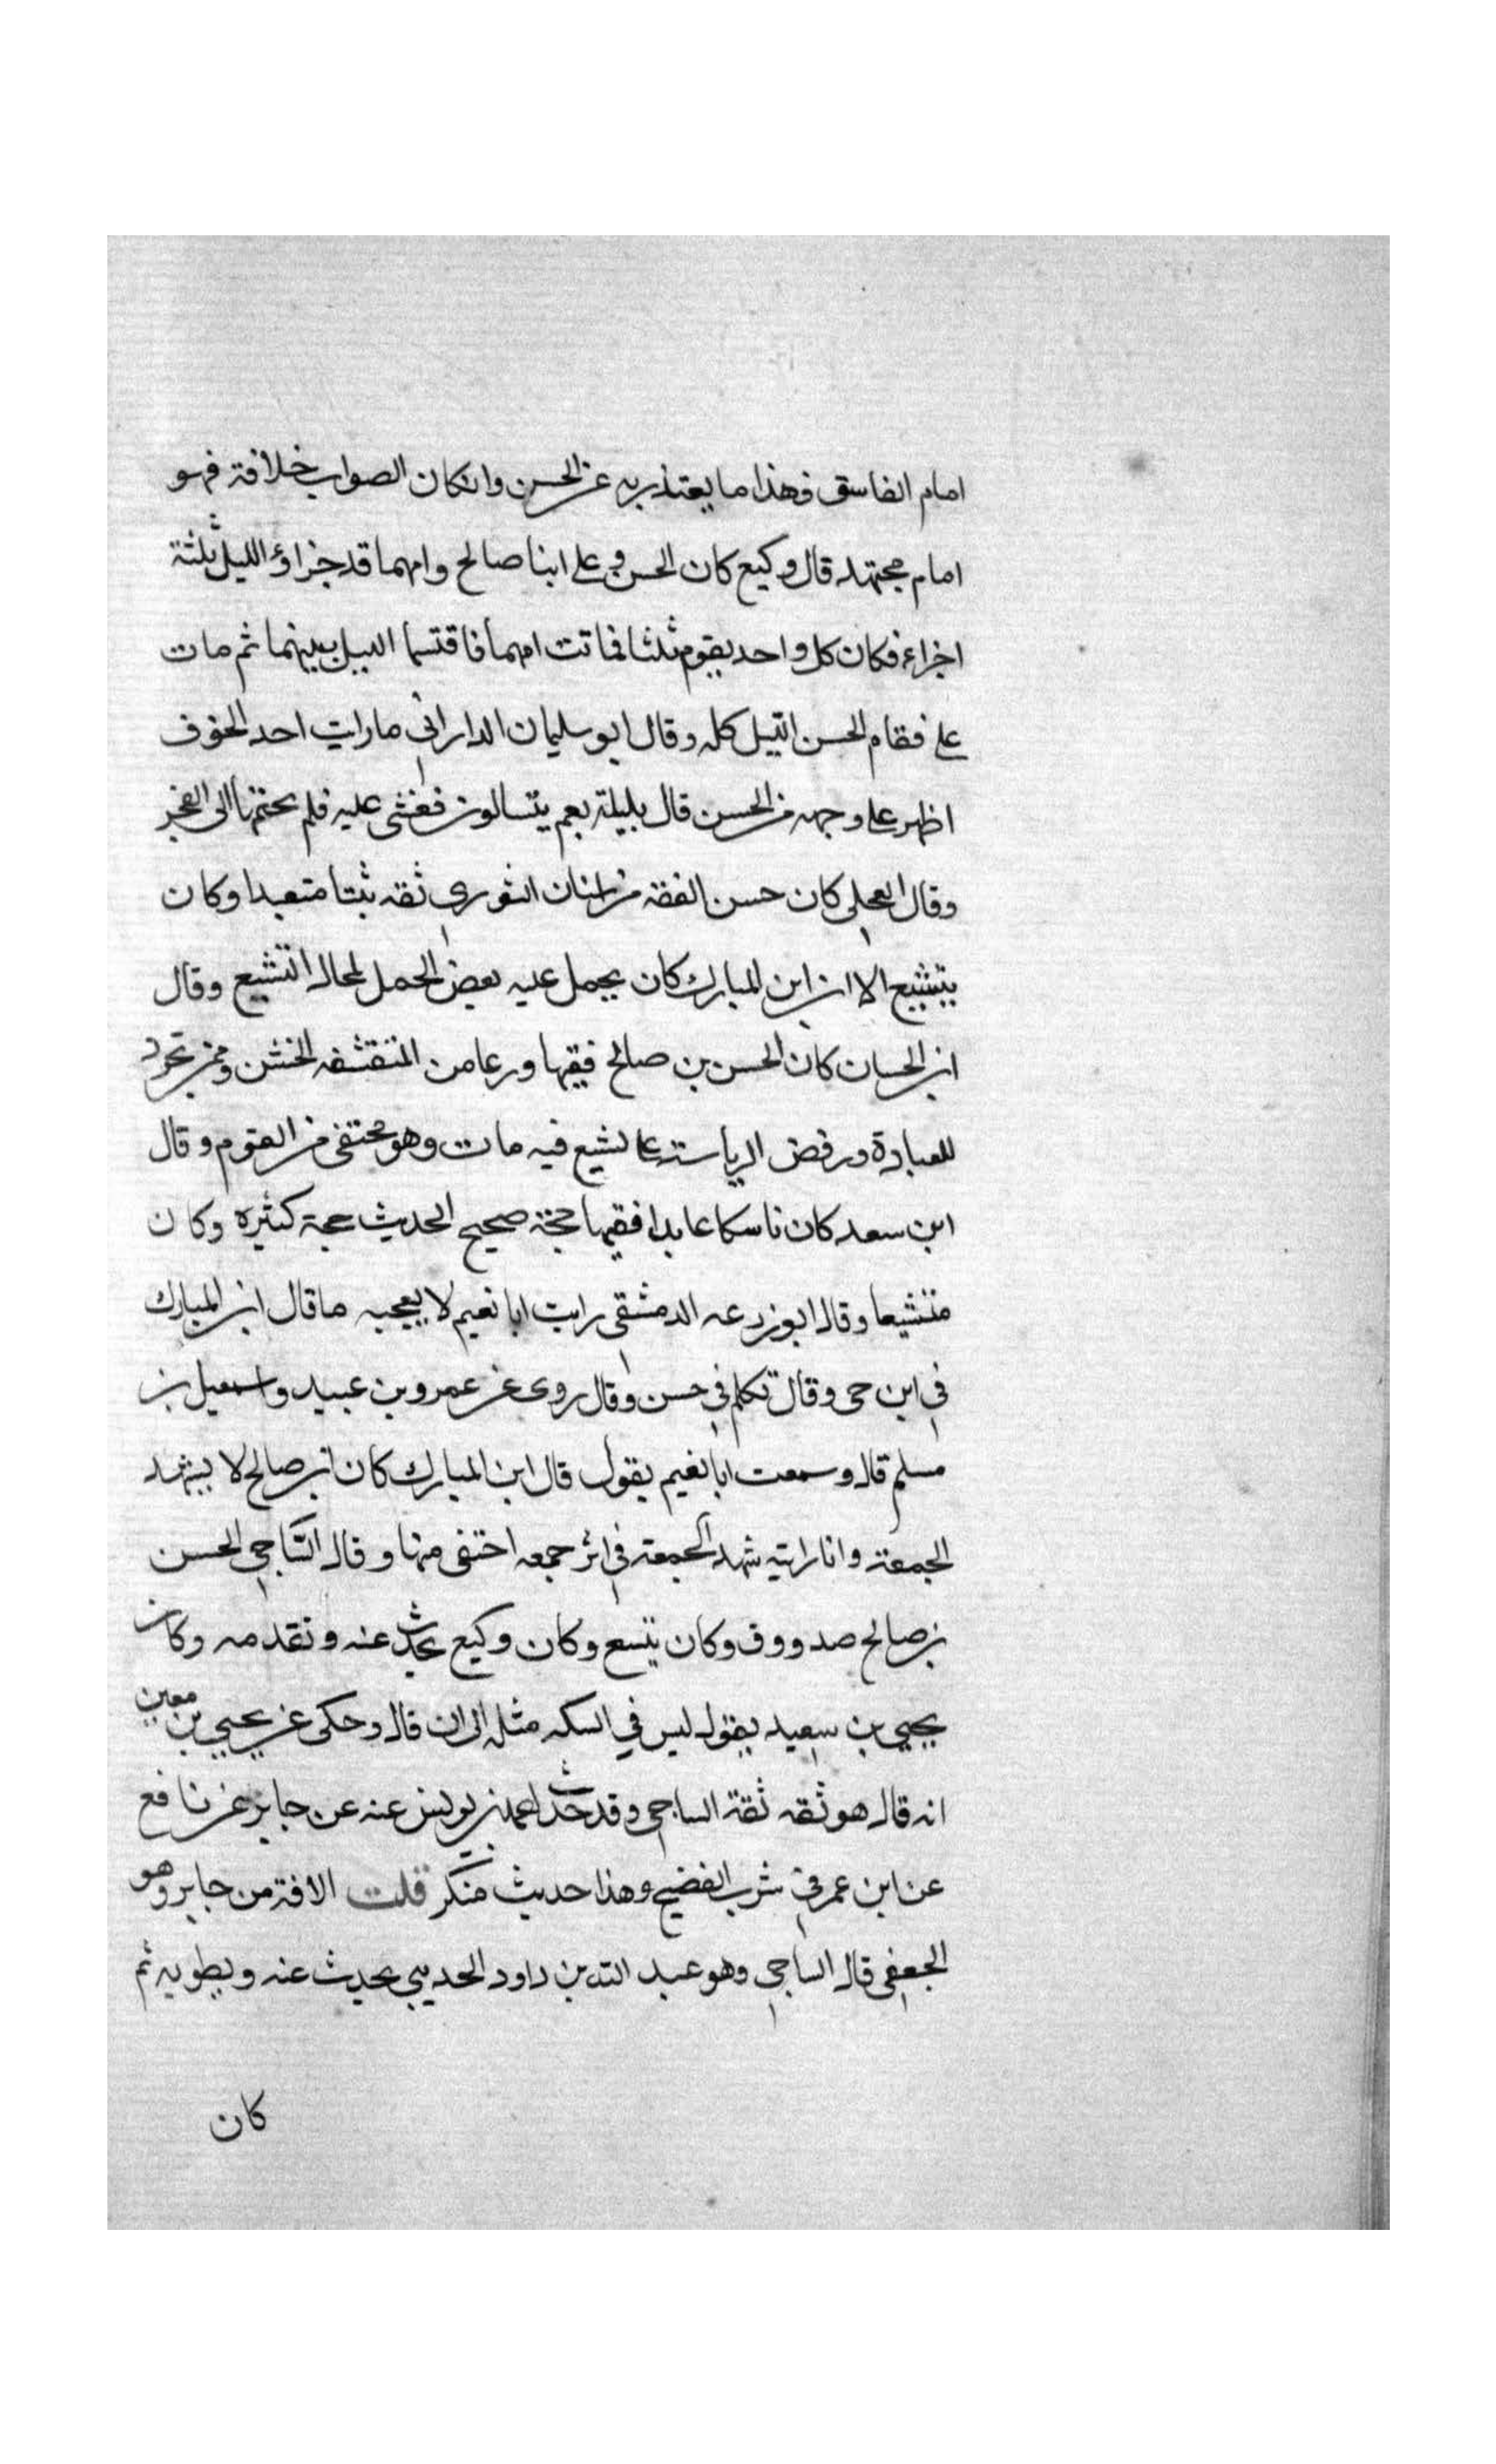 امام الفاسق فهذا ما يعتذر به عن الحسن وانكان الصواب خلافة فهو
امام مجتهد قال وكيع كان الحسن وعلي ابنا صالح وامهما قد جزاؤ الليل ثلثة
اجزاء فكان كل واحد يقوم ثلثا فماتت امهما فاقتسما الليل بينهما ثم مات
علي فقام الحسن الليل كله وقال ابو سليمان الداراني ما رايت احد الخوف
اظهر علي وجهه من الحسن قال بليلة بعم يتسالون فغشي عليه فلم يختمها الى الفجر
وقال العجلي كان حسن الفقه من اسنان الثوري ثقه ثبتا متعبدا وكان
يتشيع الا ان ابن المبارك كان يحمل عليه بعض الحمل لمحال التشيع وقال
ابن الحسان كان الحسن بن صالح فقيها ورعا من المتقشفه الخشن وممن تجرد
للعبادة ورفض الرياسته علي تشيع فيه مات وهو مختفي من القوم وقال
ابن سعد كان ناسكا عابدا فقيها حجة صحيح الحديث حجة كثيره وكان
متشيعا وقال ابو زرعه الدمشقي رايت ابا نعيم لا يعجبه ما قال ابن المبارك
في ابن حي وقال تكلم في حسن وقال روى عن عمرو بن عبيد واسمعيل بن
مسلم قال وسمعت ابا نعيم يقول قال ابن المبارك كان ابن صالح لا يشهد
الجمعة وانا رايته شهد الجمعة في اثر جمعه اختفى منها وقال الساجي الحسن
بن صالح صدووق وكان يتسع وكان وكيع يحدث عنه ونقدمه وكان
يحيي بن سعيد يقول ليس في السكه مثله الى ان قال وحكى عن يحيي بن معين
انه قال هو ثقه ثقة الساجي وقد حدث احمد بن يونس عنه عن جابر عن نافع
عن ابن عمر في شرب الفضيح وهذا حديث منكر قلت الافة من جابر وهو
الجعفي قال الساجي وهو عبد الله بن داود الحديبي يحديث عنه ويطويه ثم
كان